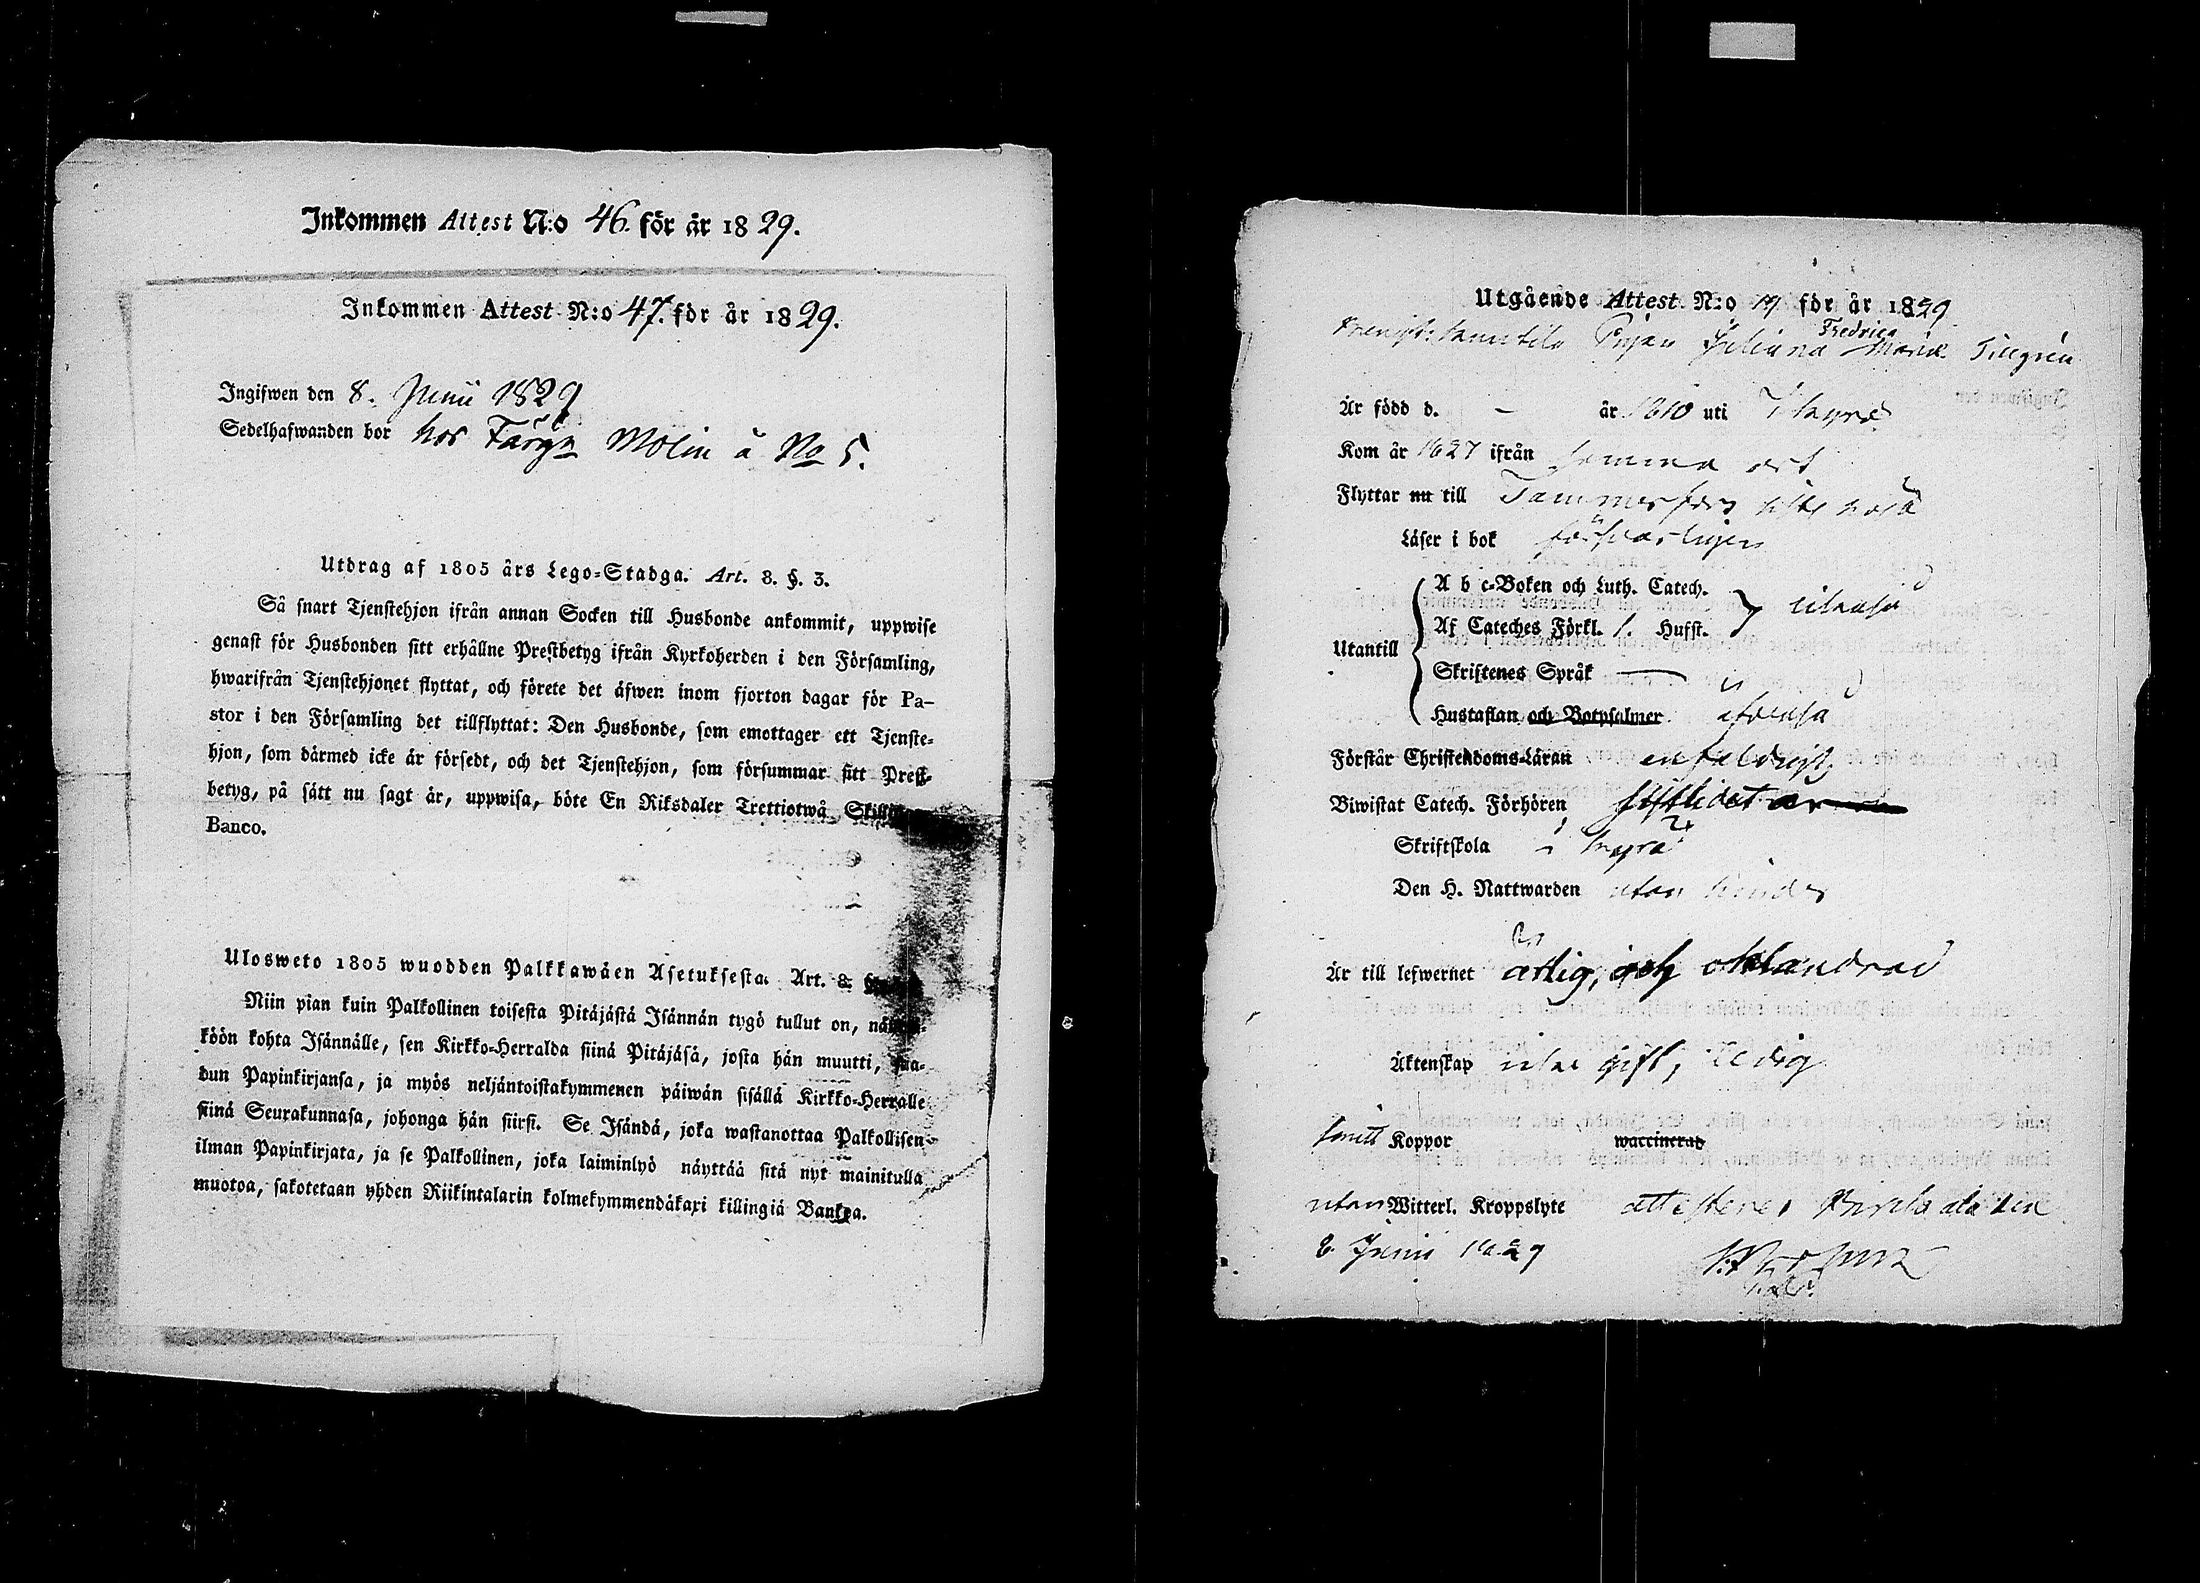 Inkommen Attest N:o 46. för år 1829.
Inkommen Attest N:o 47. för år 1829.
Ingifwen den 8. Junii 1829
Sedelhafwanden bor hos Färg: Molin å No 5.
Utdrag af 1805 års Lego-Stadga. Art. 8. §. 3.
Så snart Tjenstehjon ifrån annan Socken till Husbonde ankommit, uppwise
genast för Husbonden sitt erhållne Prestbetyg ifrån Kyrkoherden i den Församling,
hwarifrån Tjenstehjonet flyttat, och förete det äfwen inom fjorton dagar för Pa-
stor i den Församling det tillflyttat: Den Husbonde, som emottager ett Tjenste-
hjon, som därmed icke är försedt, och det Tjenstehjon, som försummar sitt Prest-
betyg, på sätt nu sagt är, uppwisa, böte En Riksdaler Trettiotwå
Banco.
Ulosweto 1805 wuodden Palkkawäen Asetuksesta. Art. 8.
Niin pian kuin Palkollinen toisesta Pitäjästä Isännän tygö tullut on,
köön kohta Isännälle, sen Kirkko-Herralda siinä Pitäjäsä, josta hän muutti, saa-
dun Papinkirjansa, ja myös neljäntoistakymmenen päiwän sisällä Kirkko-Herralle
siinä Seurakunnasa, johonga hän siirsi. Se Isändä, joka wastanottaa Palkollisen
ilman Papinkirjata, ja se Palkollinen, joka laiminlyö näyttää sitä nyt mainitulla
muotoa, sakotetaan yhden Riikintalarin kolmekymmendäkaxi killingiä Bankoa.
Utgående Attest N:o 19 för år 1829
Pigan Juliana Fredrica Maria
Är född d. - år 1810 uti Ikayrå
Kom år 1827 ifrån samma ort
Flyttar nu till Tammerfors
Läser i bok försvarligen
Utantill
A b c-Boken och Luth. Catech.
Af Cateches Förkl. 1. Hufst.
Skriftenes Språk —
Hustaflan och Botpsalmer äfvenså
Förstår Christendoms-Läran enfaldigt
Biwistat Catech. Förhören
Skriftskola i
Den H. Nattwarden utan hinder
Är till lefwernet ärlig, och oklandrad
Äktenskap icke gift, ledig
haft Koppor waccinerad
utan Witterl. Kroppslyte attesterar Birkala den
8 Junii 1829